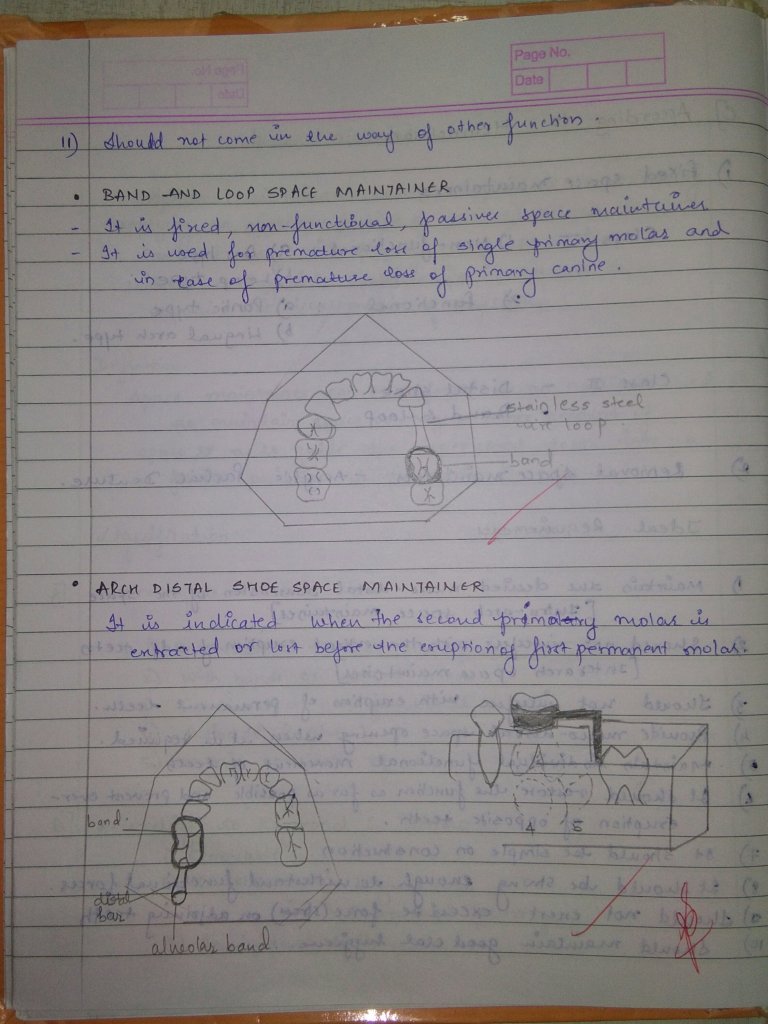 Page No.
Date
11) Should not come in the way of other function.
• BAND AND LOOP SPACE MAINTAINER
- It is fixed, non-functional, passive space maintainer
- It is used for premature loss of single primary molar and
in case of premature loss of primary canine.
stainless steel
wire loop
band
• ARCH DISTAL SHOE SPACE MAINTAINER
It is indicated when the second primary molar is
extracted or lost before the eruption of first permanent molar.
4 5
band
distal
bar
alveolar band